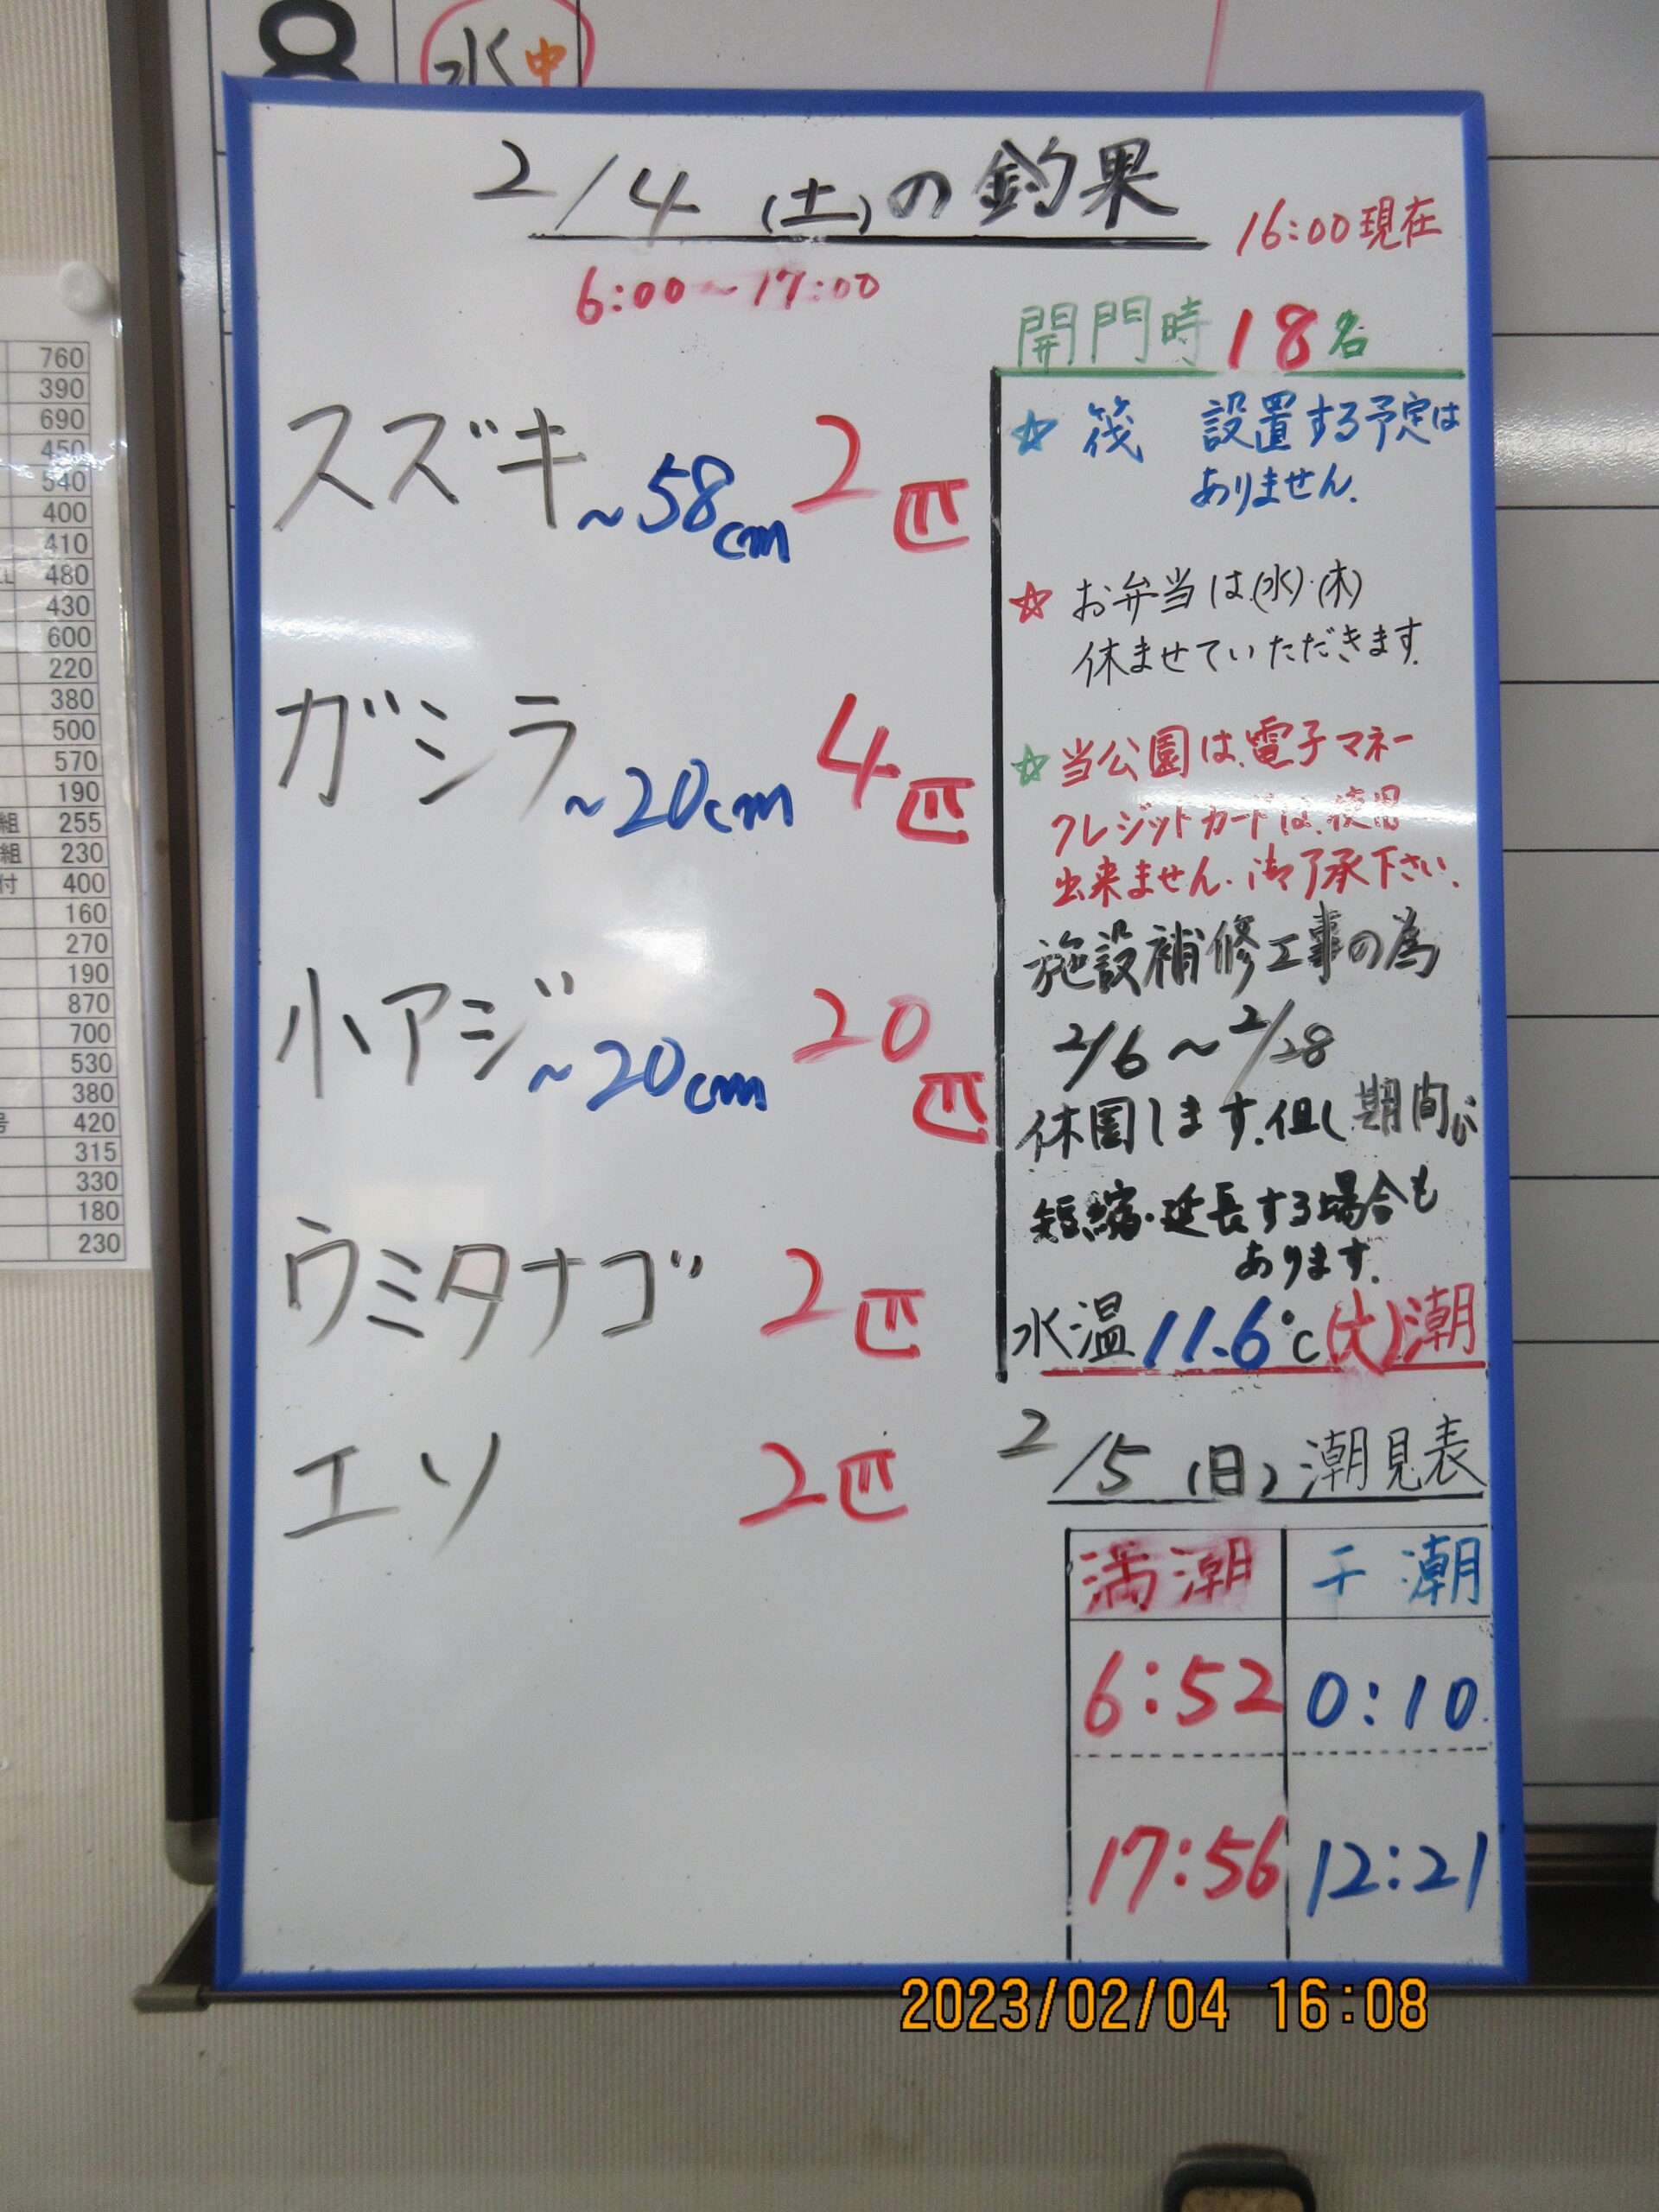 8
水 中
2/4 (土)の釣果
16:00現在
6:00~17:00
開門時 18名
スズキ ~58cm 2匹
ガシラ ~20cm 4匹
小アジ ~20cm 20匹
ウミタナゴ 2匹
エソ 2匹
☆ 筏 設置する予定は
ありません。
☆ お弁当は(水)・(木)
休ませていただきます。
☆ 当公園は、電子マネー
クレジットカードは、使用
出来ません。御了承下さい。
施設補修工事の為
2/6~2/28
休園します。但し期間は
短縮・延長する場合も
あります。
水温 11.6℃ (大)潮
2/5 (日) 潮見表
満潮 干潮
6:52 0:10
17:56 12:21
760
390
690
450
540
400
410
480
430
600
220
380
500
570
190
組 255
組 230
付 400
160
270
190
870
700
530
380
号 420
315
330
180
230
2023/02/04 16:08